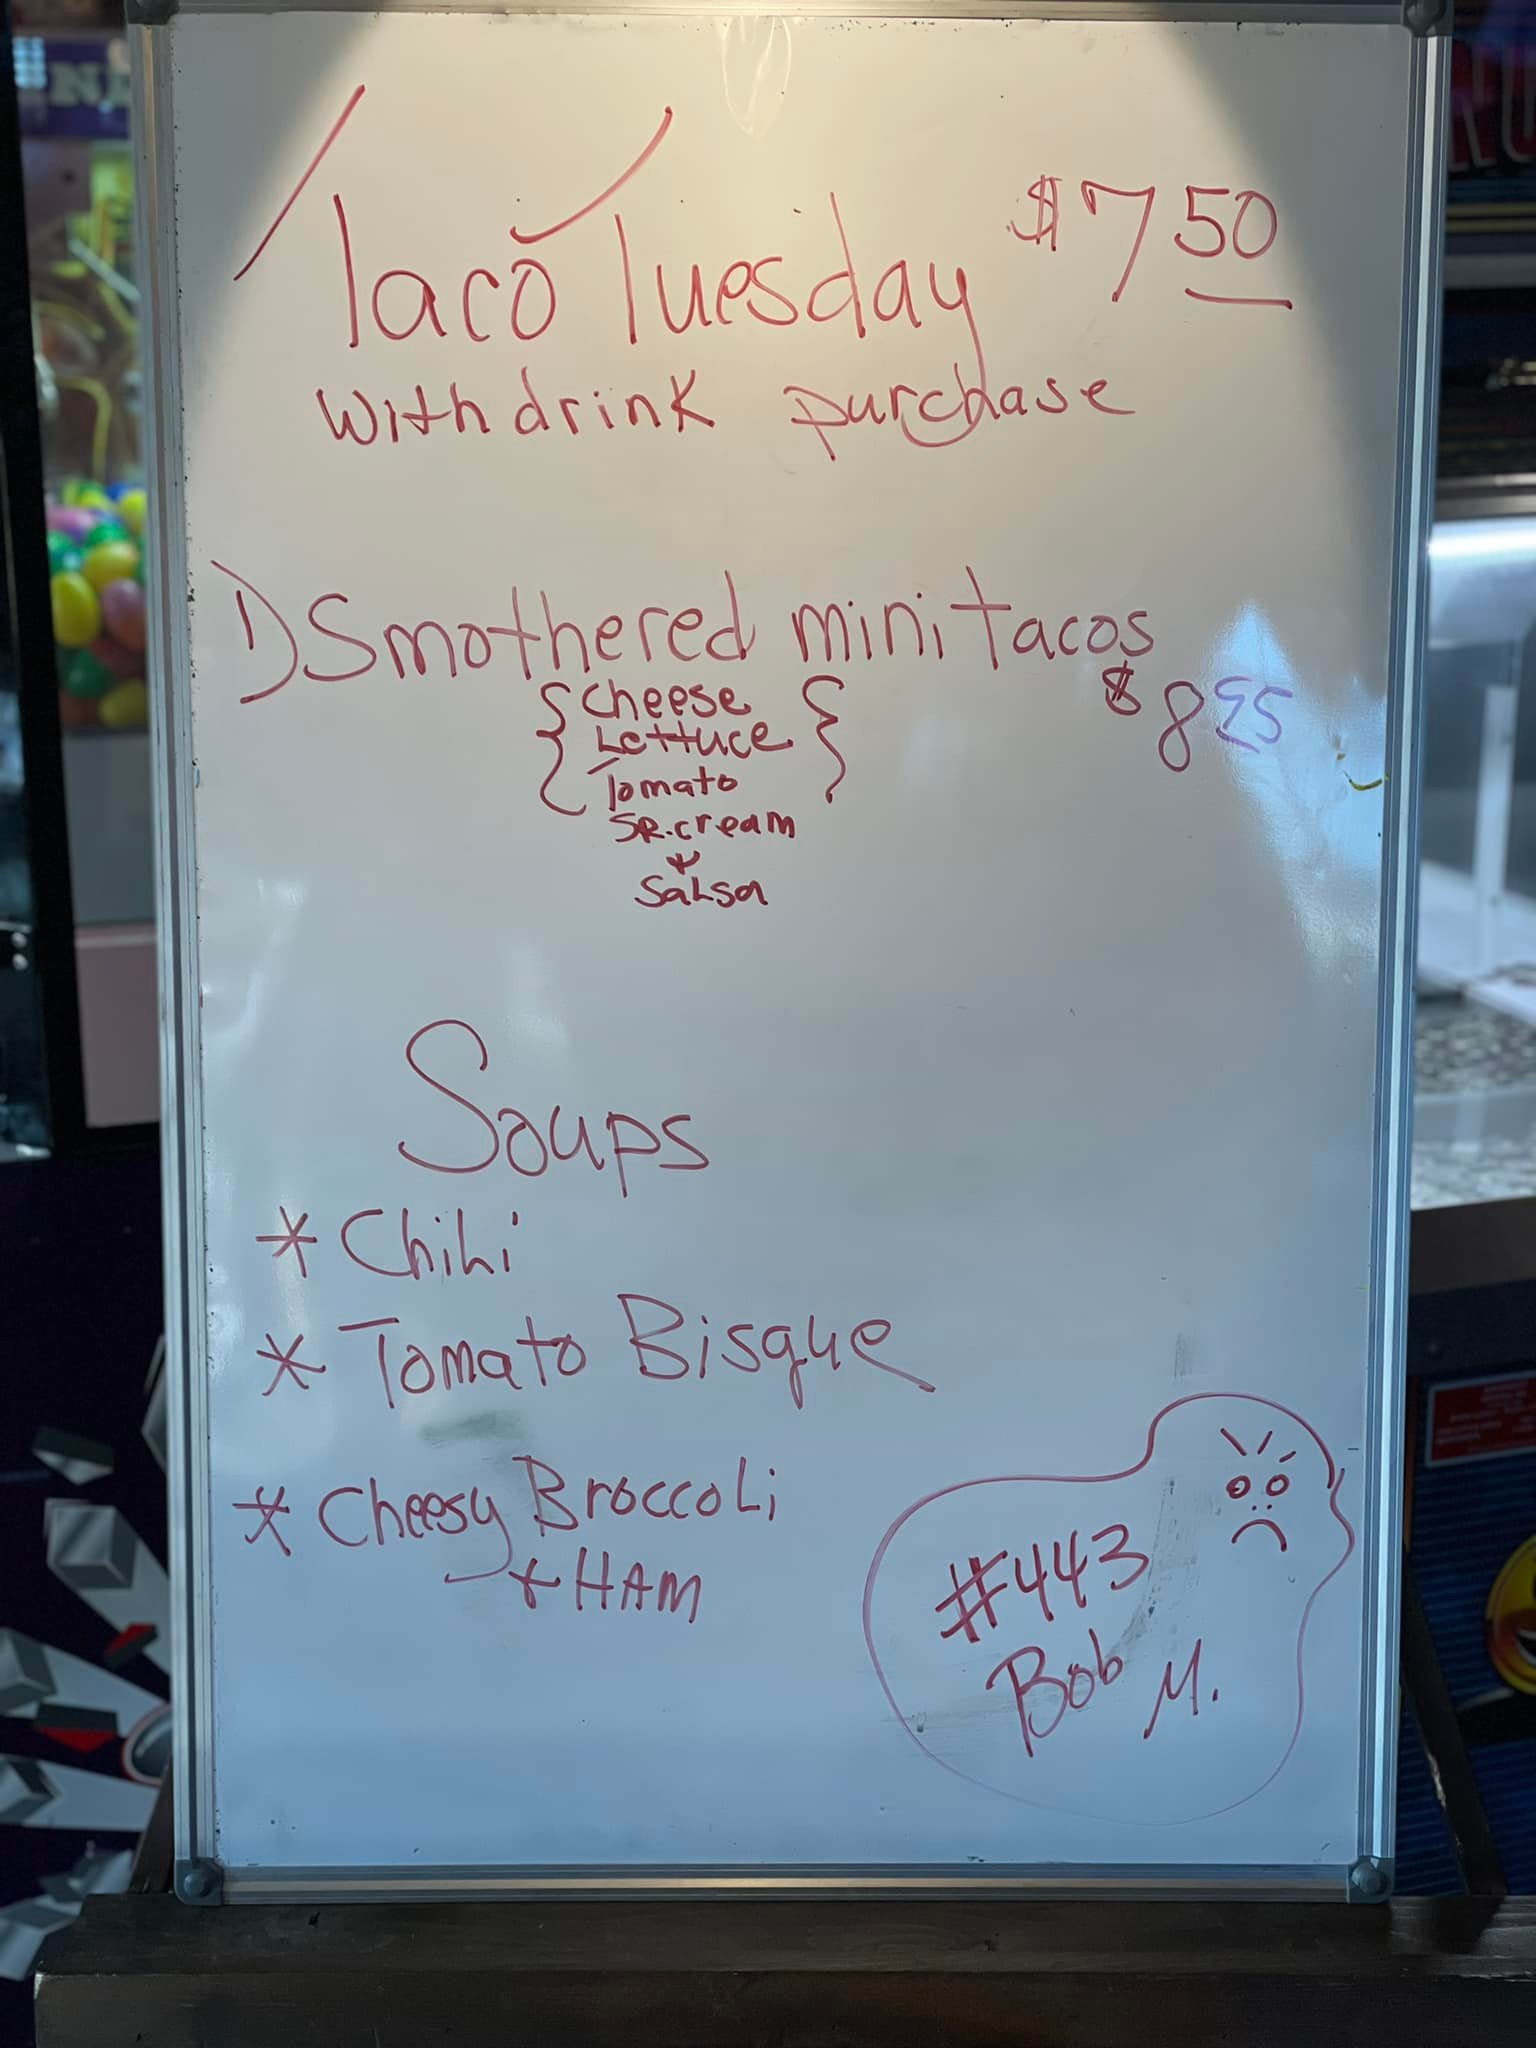 Taco Tuesday $7 50
with drink purchase
1) Smothered mini tacos
$8 95
{ cheese }
Lettuce
Tomato
SR. cream
+
Salsa
Soups
* Chili
* Tomato Bisque
* Cheesy Broccoli
+ HAM
#443
Bob M.